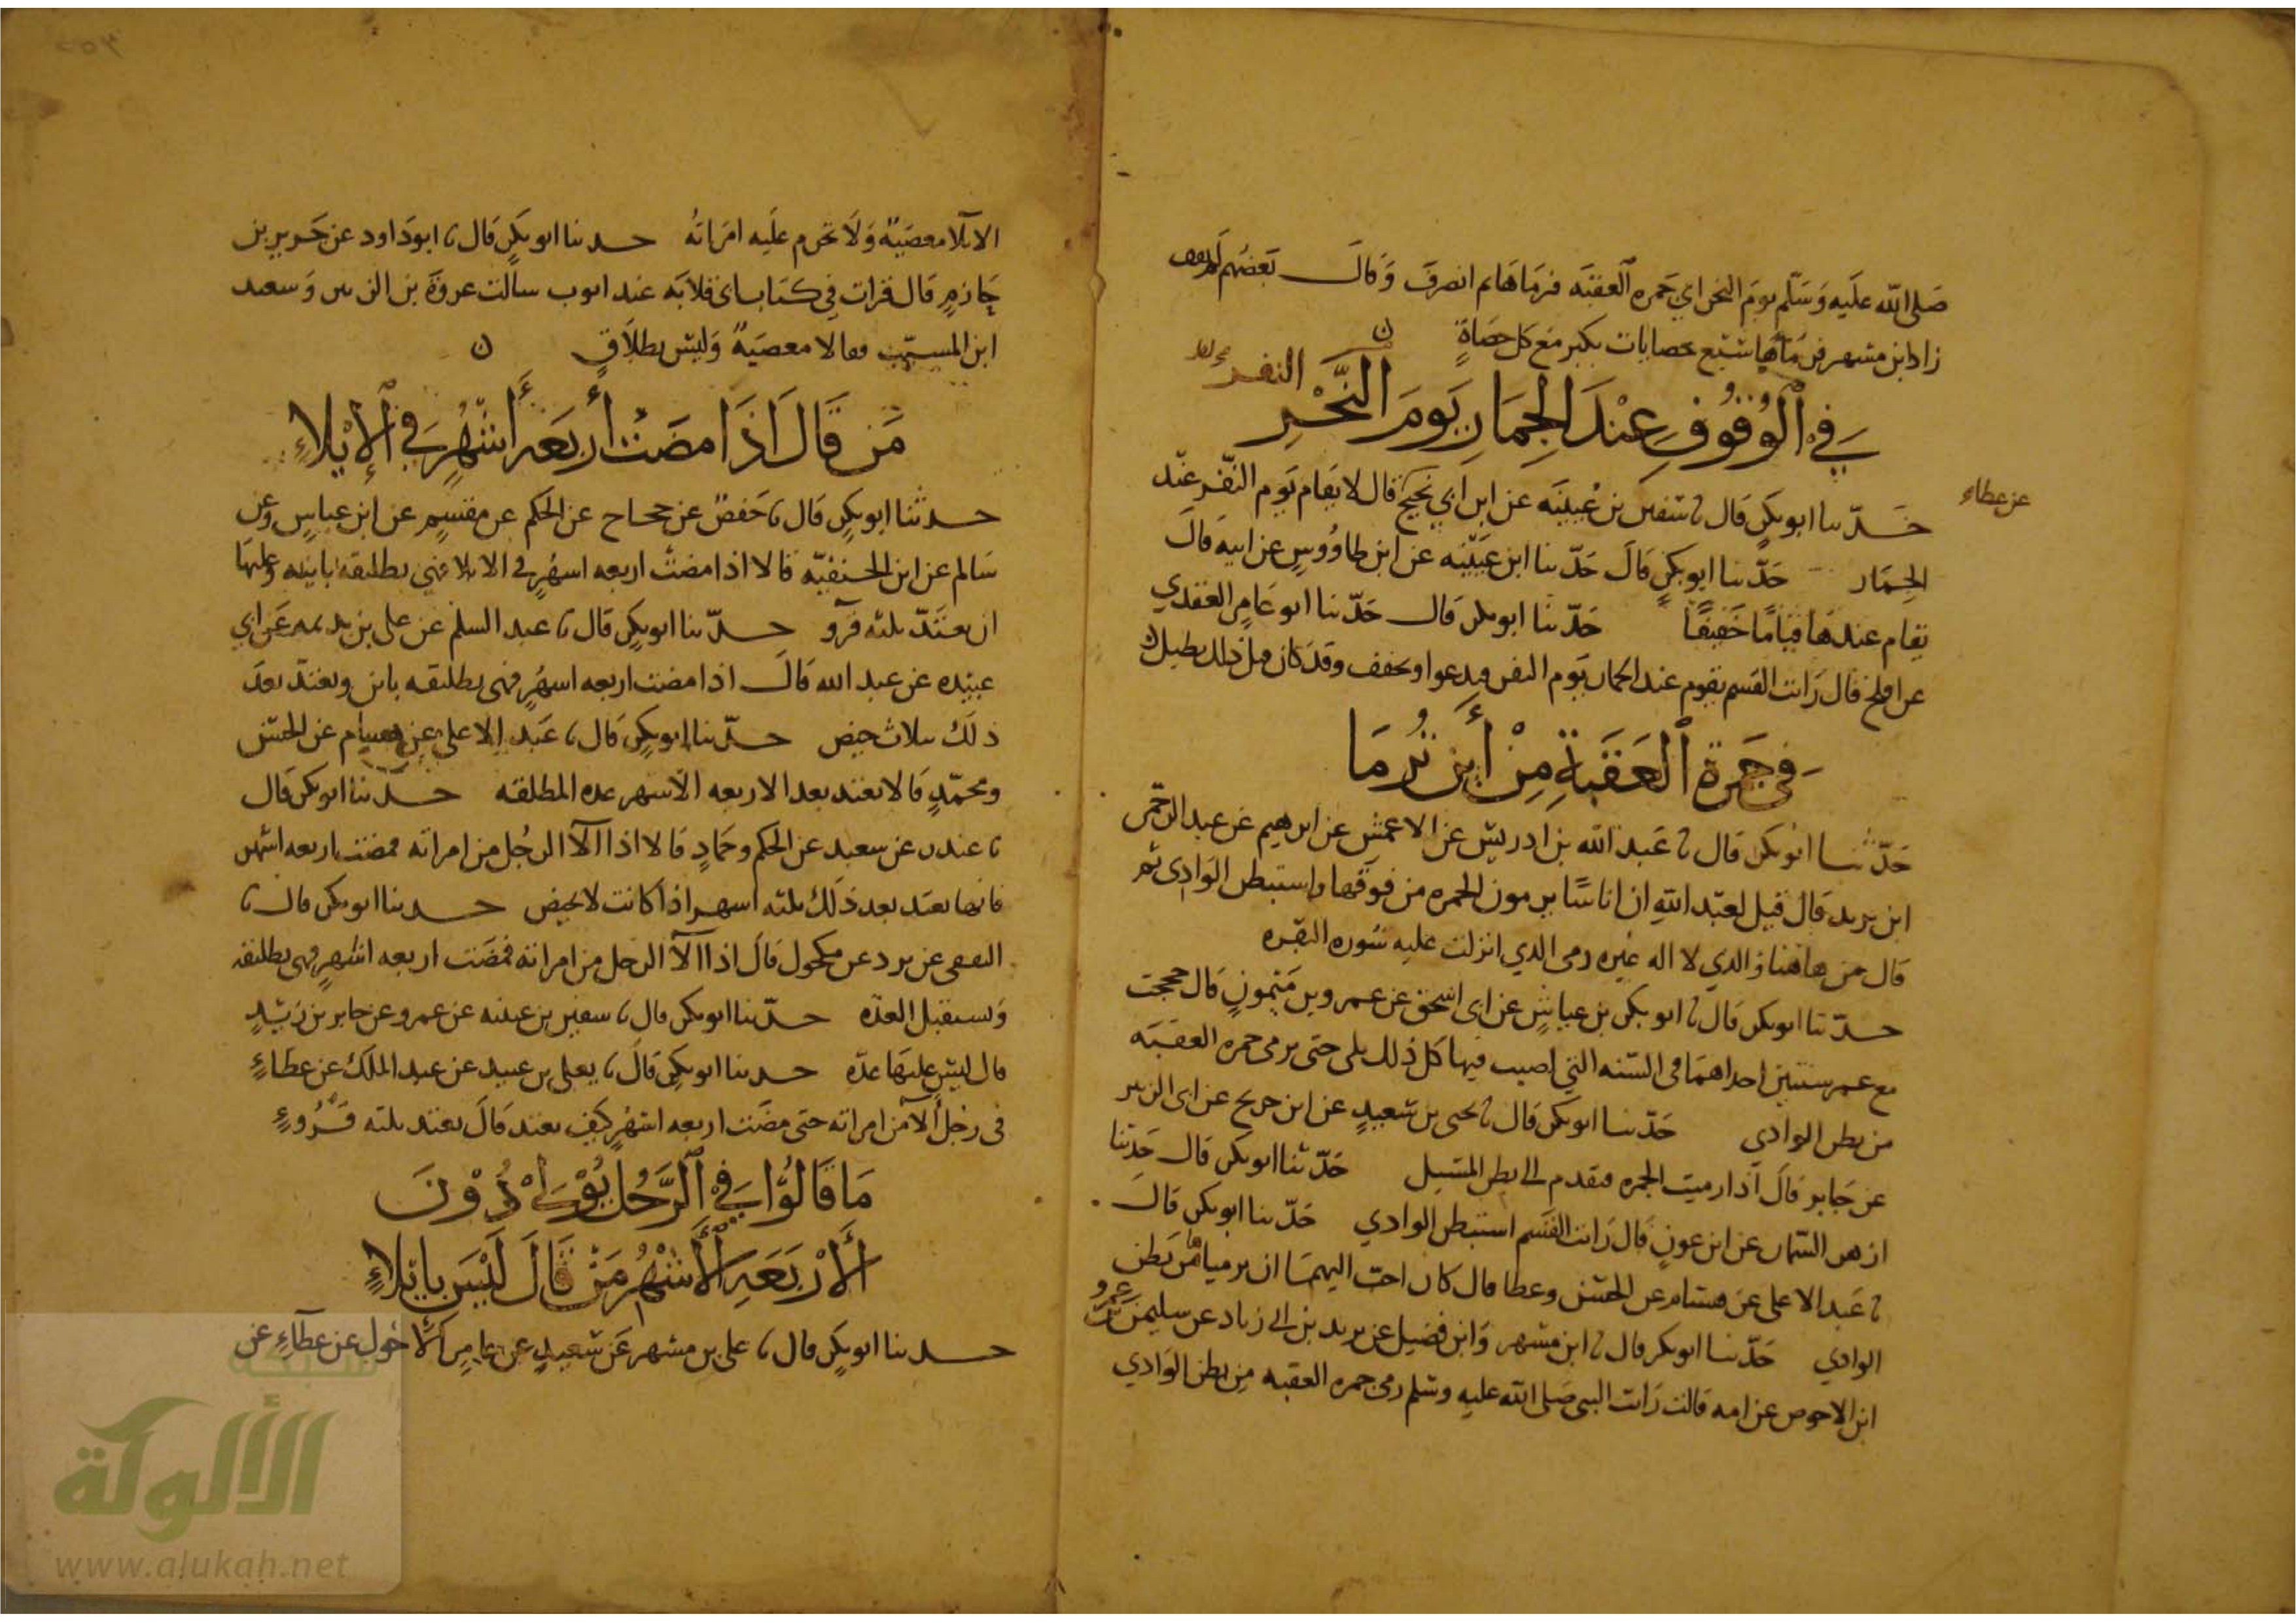 صَلى الله علَيه وَسَلّم يومَ النحر اتي جَمره العَقبَه فرمَاهَا ثم انصرفَ وَقالَ بَعضهُم لم يقف
زاد ابن مسهر فرمَاهَا بسَبع حصَايات يكبر مَع كل حصَاةٍ ن
النفر
في الوُقوُفِ عِنْدَ الجِمَارِ يَومَ النَّحْرِ
عن عطاء
حَدّثنا ابوبكرٍ قال نا سفين بن عُيينَه عن ابن ابي نجيح قال لا يقام يَوم النّفر عنْد
الجِمَار حَدّثنا ابوبكرٍ قالَ حَدّثنا ابن عيَيْنه عن ابن طاوُوسٍ عن ابيه قالَ
يقام عندهَا قيَامًا خَفيفًا حَدّثنا ابوبكر قال حَدّثنا ابو عَامِر العَقدي
عن افلح قال رَايت القسم يقوم عند الجمار يَوم النفر فيدعوا ويخفف وقد كان قبل ذلك يطيل ن
في جَمَرةِ العَقَبَةِ مِنْ أَيْنَ تُرمَا
حَدّثنا ابوبكر قال نا عَبد الله بن ادريسَ عن الاعمش عن ابرهيم عن عبد الرحمن
ابن يزيد قال قيل لعَبْد الله ان اناسًا يرمون الجمره من فوقهَا واستبطن الوَادي ثم
قال من هاهنا والذي لا اله غيره رمى الذي انزلت عليه سُوره البقره
حدّثنا ابوبكر قال نا ابو بكر بن عياشٍ عن ابي اسحق عن عمرو بن مَيْمُونٍ قال حججت
مع عمر سنتين احداهمَا في السّنه التي اصيب فيها كل ذلك يلبى حتى يرمى جمره العقبَه
من بطن الوادي حَدّثنا ابوبكر قال نا يحى بن سَعيدٍ عن ابن جريح عن ابى الزبير
عن جَابر قالَ اذا رميت الجمره فتقدم الى بطن المسَيل حَدّثنا ابوبكر قال حَدثنا
ازهر السّمان عن ابن عونٍ قال رَايت القسم استبطن الوادي حَدّثنا ابوبكر قالَ
نا عَبد الاعلى عن هشام عن الحسَن وعطا قال كان احبّ اليهمَا ان يرمياها من بَطن
الوادي حَدّثنا ابوبكر قال نا ابن مسهر وَابن فضيل عن يزيد بن ابى زياد عن سليمن بن عَمرو
ابن الاحوص عن امه قالت رَايت النبى صَلى الله عليه وسَلم رمى جمره العقبه مِن بطن الوَادي
الايلا معصيَة وَلَا تحرم علَيه امرَاتُه حدثنا ابوبكرٍ قال نا ابوداود عن جَرير بن
حَازمٍ قال قرات في كتاب ابى قلابَه عند ايوب سالت عروَة بن الزبير وَسعيد
ابن المسيّب فقالا معصيَة وَليْسَ بطلاَقٍ ن
مَن قَالَ اذَا مضَتْ أربَعَة أَشْهُرٍ في الإِيْلَاءِ
حدثنا ابوبكرٍ قال نا حَفصٌ عن حجاج عن الحكم عن مقسِمٍ عن ابن عباسٍ وعن
سَالم عن ابن الحنفيّه قالا اذا مضتْ اربعه اشهُرٍ في الايلا فهي تطليقه بَاينه وَعليهَا
ان تعتَدّ ثلثه قرؤ حدّثنا ابوبكرٍ قال نا عبد السلم عن على بن بذيمه عَن ابي
عبيْده عن عبد الله قالَ اذا مضت اربعه اشهُرٍ فهى تطليقه باين وتعتدّ بعدَ
ذلكَ ثلاث حيض حدّثنا ابوبكرٍ قال نا عَبد الاعلى عن هشام عن الحسَن
ومحمّدٍ قالا تعتد بعد الاربعه الاشهر عده المطلقه حدّثنا ابوبكر قال
نا غندر عن سعيد عن الحكم وحمادٍ قالا اذا الاَ الرجُل من امراته فمضت اربعه اشهر
فانها تعتَد بعد ذلكَ ثلثه اشهر اذا كانت لا تحيض حدثنا ابوبكر قال نا
الثقفى عن برد عن مكحول قالَ اذا الاَ الرجل من امراته فمضَت اربعه اشهرٍ فهى تطليقه
وَتستقبل العدّه حدّثنا ابوبكر قال نا سفين بن عيينه عن عمرو عن جابر بن زَيدٍ
قال ليسَ عليهَا عدّه حدثنا ابوبكرٍ قالَ نا يعلى بن عبيد عن عبد الملك عن عطَاءٍ
في رجُل الاَ من امراته حتى مضَت اربعه اشهُرٍ كيف تعتد قالَ تعتد ثلثه قُرُوءٍ
مَا قَالُوا في الرَّجُل يُوْلى دُوْنَ
الأَرْبَعَهِ الأَشْهُرِ مَنْ قَالَ لَيْسَ بايْلَاءٍ
حدثنا ابوبكرٍ قال نا على بن مسهر عَن سَعيدٍ عن عامِر الأحْول عن عَطَاءٍ عن
شبكة
الألوكة
www.alukah.net